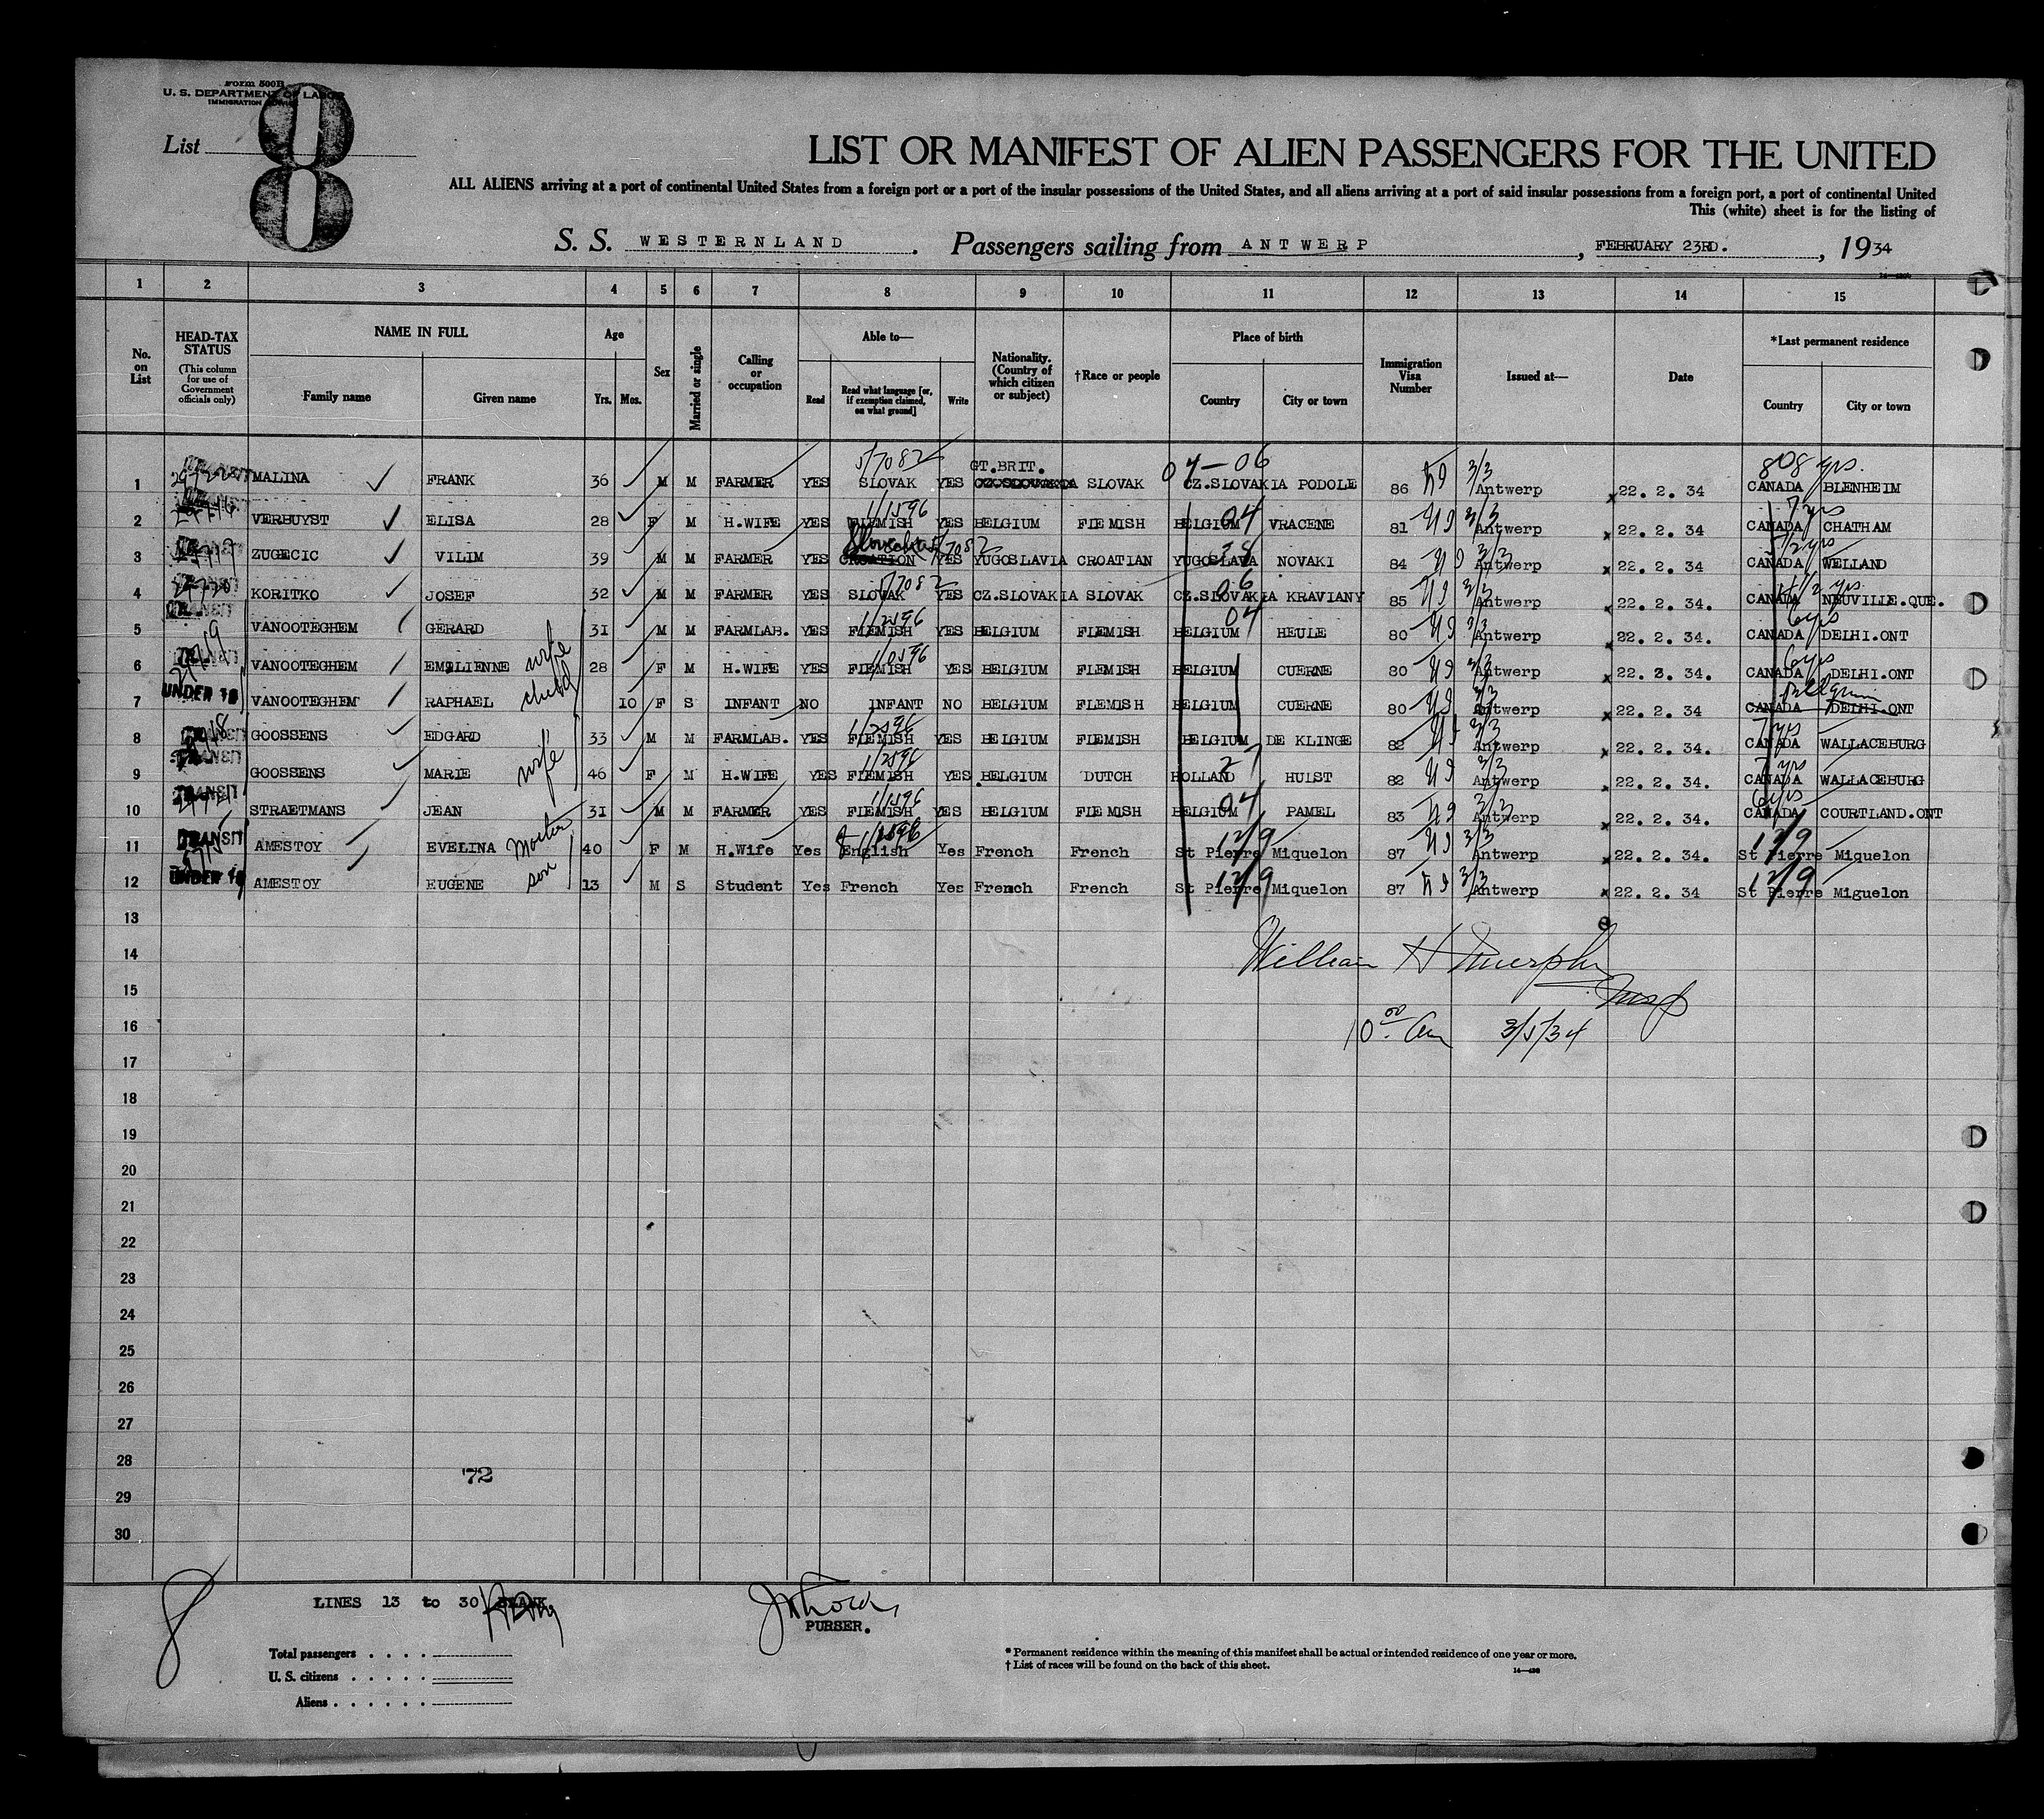 Form 500B
U. S. DEPARTMENT OF LABOR
IMMIGRATION
List 8
LIST OR MANIFEST OF ALIEN PASSENGERS FOR THE UNITED
ALL ALIENS arriving at a port of continental United States from a foreign port or a port of the insular possessions of the United States, and all aliens arriving at a port of said insular possessions from a foreign port, a port of continental United
This (white) sheet is for the listing of
S. S. WESTERNLAND. Passengers sailing from ANTWERP, FEBRUARY 23RD., 1934
1 2 3 4 5 6 7 8 9 10 11 12 13 14 15
No. on List
HEAD-TAX STATUS (This column for use of Government officials only)
NAME IN FULL Family name Given name
Age Yrs. Mos.
Sex
Married or single
Calling or occupation
Able to— Read Read what language [or, if exemption claimed, on what ground] Write
Nationality. (Country of which citizen or subject)
†Race or people
Place of birth Country City or town
Immigration Visa Number
Issued at—
Date
*Last permanent residence Country City or town
1 MALINA FRANK 36 M M FARMER YES 5/7082 SLOVAK YES GT.BRIT. CZ.SLOVAKIA SLOVAK 04-06 CZ.SLOVAKIA PODOLE 86 3/3 Antwerp 22. 2. 34 8 yrs. CANADA BLENHEIM
2 VERBUYST ELISA 28 F M H.WIFE YES FLEMISH YES BELGIUM FLEMISH BELGIUM 04 VRACENE 81 3/3 Antwerp 22. 2. 34 7 yrs CANADA CHATHAM
3 ZUGECIC VILIM 39 M M FARMER YES CROATION YES YUGOSLAVIA CROATIAN YUGOSLAVA NOVAKI 84 3/3 Antwerp 22. 2. 34 CANADA WELLAND
4 KORITKO JOSEF 32 M M FARMER YES 5/7082 SLOVAK YES CZ.SLOVAKIA SLOVAK CZ.SLOVAKIA 06 KRAVIANY 85 3/3 Antwerp 22. 2. 34. CANADA NEUVILLE.QUE.
5 VANOOTEGHEM GERARD 31 M M FARMLAB. YES FLEMISH YES BELGIUM FLEMISH BELGIUM 04 HEULE 80 3/3 Antwerp 22. 2. 34. 6 yrs CANADA DELHI.ONT
6 VANOOTEGHEM EMILIENNE wife 28 F M H.WIFE YES FLEMISH YES BELGIUM FLEMISH BELGIUM CUERNE 80 3/3 Antwerp 22. 2. 34. 6 yrs CANADA DELHI.ONT
UNDER 16
7 VANOOTEGHEM RAPHAEL child 10 F S INFANT NO INFANT NO BELGIUM FLEMISH BELGIUM CUERNE 80 3/3 Antwerp 22. 2. 34 Belgium CANADA DELHI.ONT
8 GOOSSENS EDGARD 33 M M FARMLAB. YES FLEMISH YES BELGIUM FLEMISH BELGIUM DE KLINGE 82 3/3 Antwerp 22. 2. 34. 7 yrs CANADA WALLACEBURG
9 GOOSSENS MARIE wife 46 F M H.WIFE YES FLEMISH YES BELGIUM DUTCH HOLLAND 27 HULST 82 3/3 Antwerp 22. 2. 34. 7 yrs CANADA WALLACEBURG
TRANSIT
10 STRAETMANS JEAN 31 M M FARMER YES FLEMISH YES BELGIUM FLEMISH BELGIUM 04 PAMEL 83 3/3 Antwerp 22. 2. 34. 6 yrs CANADA COURTLAND.ONT
TRANSIT
11 AMESTOY EVELINA Mother 40 F M H.Wife Yes English Yes French French St Pierre Miquelon 12/9 87 3/3 Antwerp 22. 2. 34. 12/9 St Pierre Miquelon
UNDER 16
12 AMESTOY EUGENE son 13 M S Student Yes French Yes French French St Pierre Miquelon 12/9 87 3/3 Antwerp 22. 2. 34 12/9 St Pierre Miguelon
13
14 William H Murphy
15 Insp
16 10 00 Am 3/5/34
17
18
19
20
21
22
23
24
25
26
27
28 72
29
30
8
LINES 13 to 30 BLANK
PURSER.
Total passengers
U. S. citizens
Aliens
* Permanent residence within the meaning of this manifest shall be actual or intended residence of one year or more.
† List of races will be found on the back of this sheet.